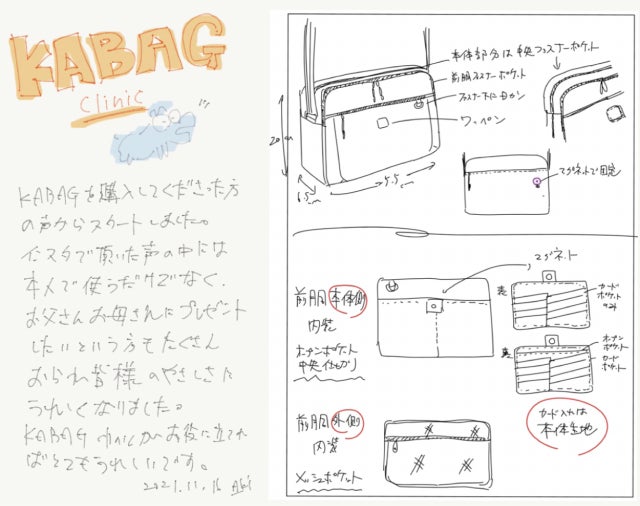 KABAG
Clinic
KABAGを購入してくださった方
の声からスタートしました。
インスタで頂いた声の中には
本人で使うだけでなく、
お父さんお母さんにプレゼント
したいという方もたくさん
おられ皆様のやさしさに
うれしくなりました。
KABAG clinicがお役に立てれ
ばとてもうれしいです。
2021.11.16
本体部分は中央ファスナーポケット
前胴ファスナーポケット
ファスナー下に
ワッペン
20cm
6.5cm
マグネットで固定
マグネット
前胴本体側
内装
オープンポケット
中央仕切り
表
カード
ポケット
のみ
裏
オープン
ポケット
カード
ポケット
前胴外側
内装
メッシュポケット
カード入れは
本体生地